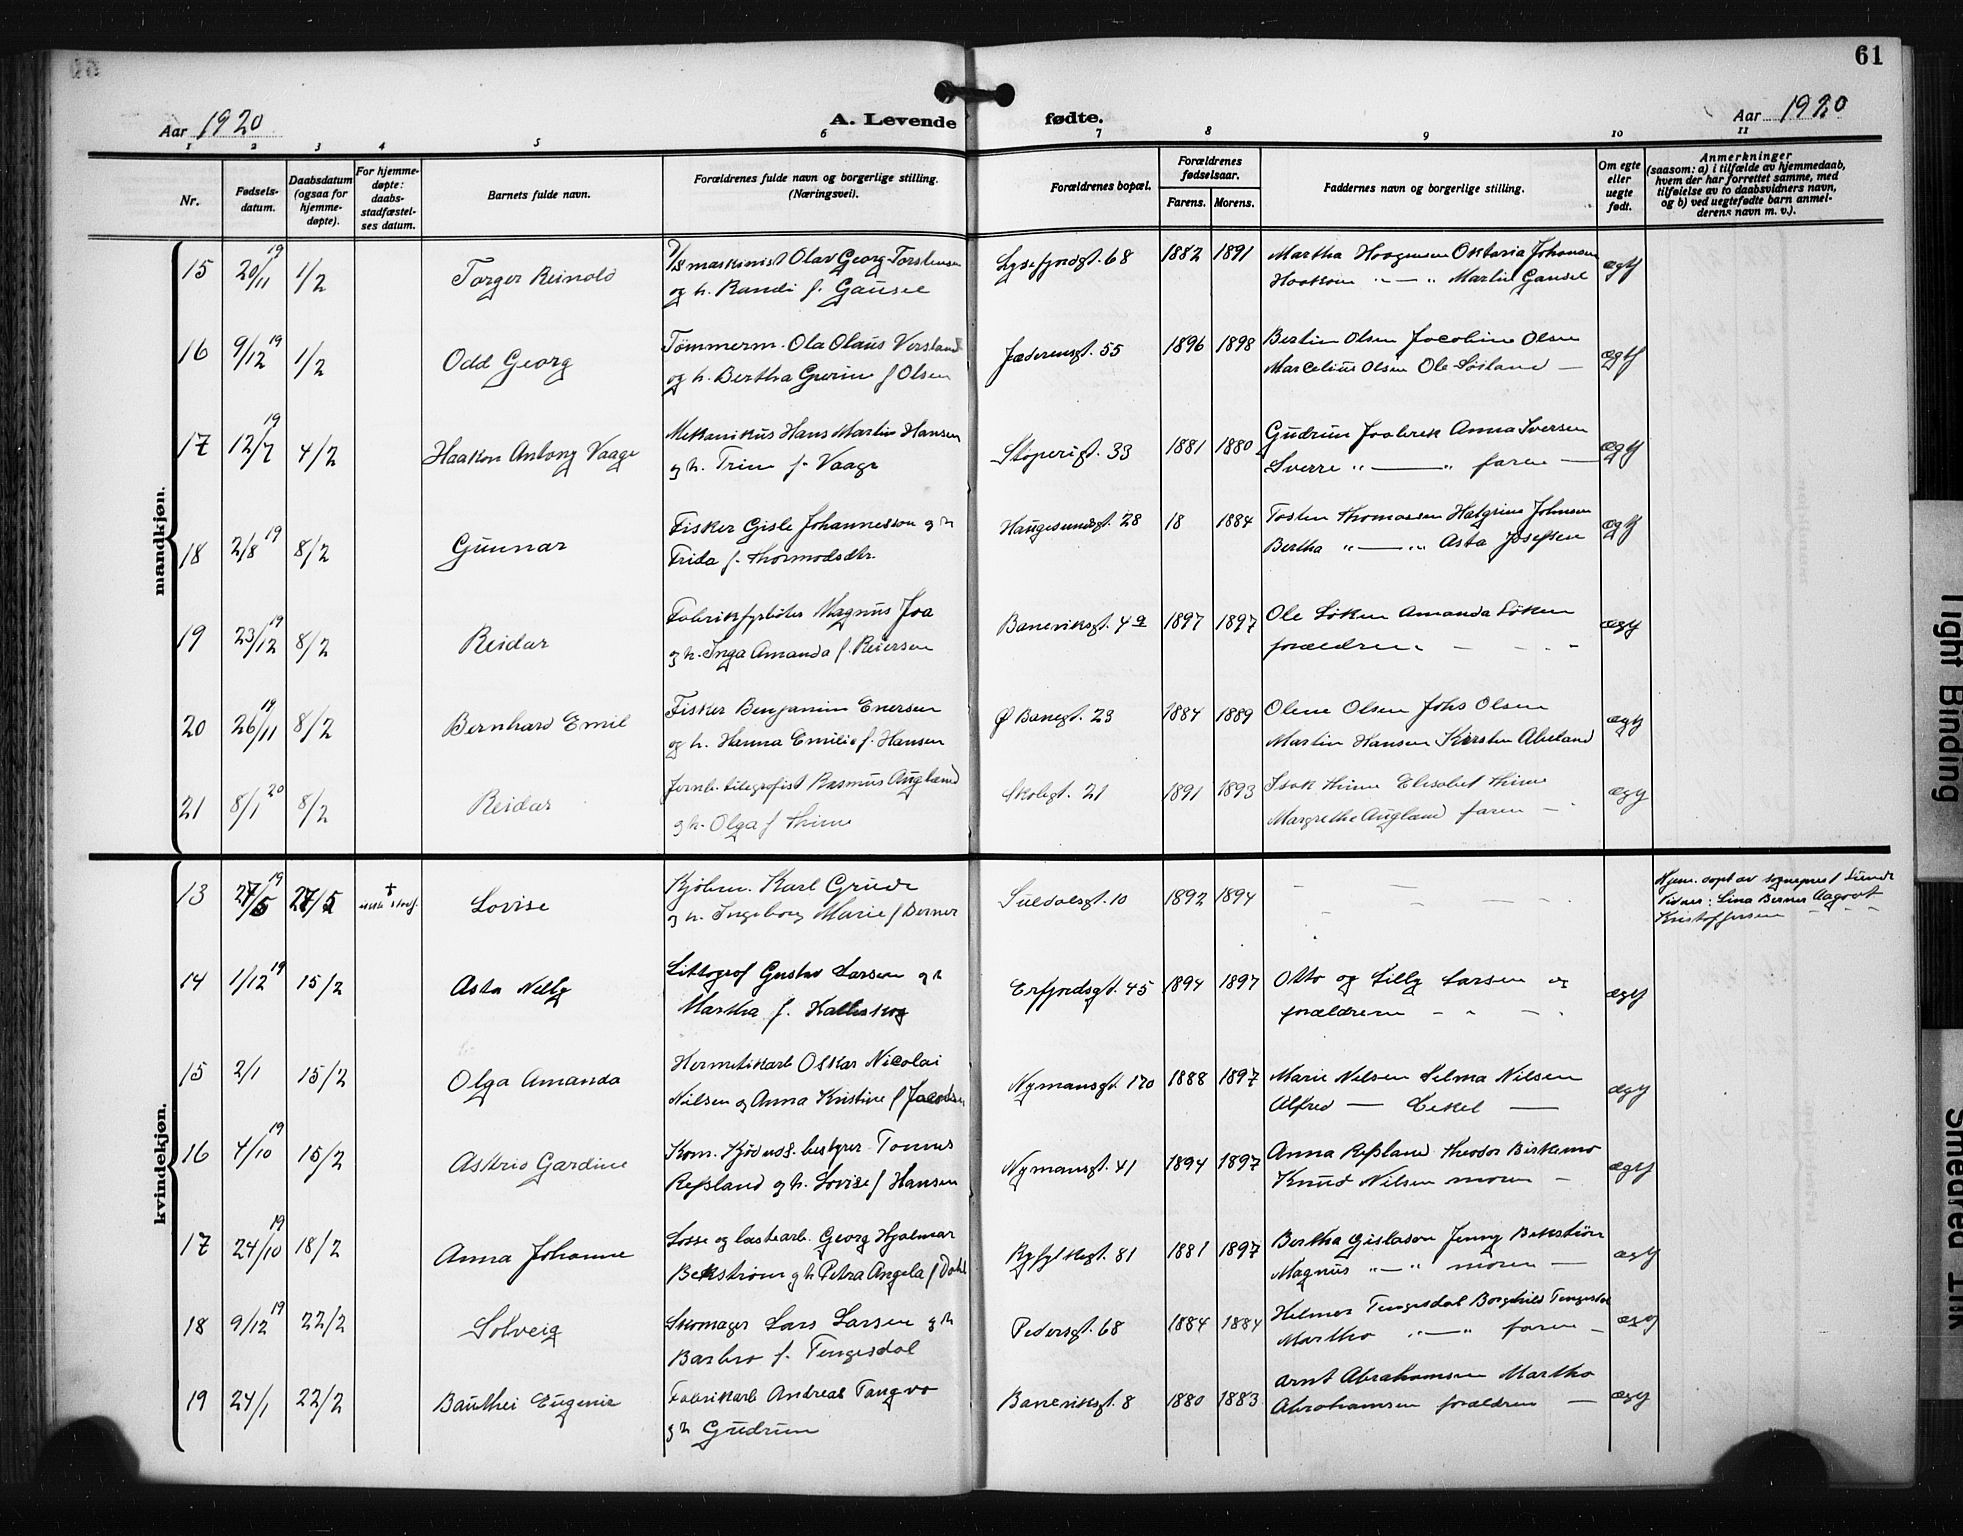 61
Aar 1920
A. Levende fødte.
Aar 1920
1 2 3 4 5 6 7 8 9 10 11
Nr.
Fødsels-
datum.
Daabsdatum
(ogsaa for
hjemme-
døpte).
For hjemme-
døpte:
daabs-
stadfæstel-
ses datum.
Barnets fulde navn.
Forældrenes fulde navn og borgerlige stilling.
(Næringsvei).
Forældrenes bopæl.
Forældrenes
fødselsaar.
Farens. Morens.
Faddernes navn og borgerlige stilling.
Om egte
eller
uegte
født.
Anmerkninger
(saasom: a) i tilfælde av hjemmedaab,
hvem der har forrettet samme, med
tilføielse av to daabsvidners navn,
og b) ved uegtefødte barn anmel-
derens navn m. v.).
mandkjøn.
15 20/11 19 1/2 Torger Reinold maskinist Olav Georg Torstensen Lysefjordgt. 68 1882 1891 Martha Haagensen Oktavia Johansen ægtf
og h. Randi f. Gausel Haakon " — " Martin Gausel
16 9/12 19 1/2 Odd Georg Tømmerm. Ola Olaus Versland Jæderensgt. 55 1896 1898 Bertin Olsen Jacobine Olsen ægtf
og h. Bertha Gurine f Olsen Marcelius Olsen Ole Soiland —
17 12/7 19 4/2 Haakon Antony Vaage Mekanikus Hans Martin Hansen Støperigt. 33 1881 1880 Gudrun Anna Iversen ægtf
og h. Trine f. Vaage Sverre " — " faren —
18 2/8 19 8/2 Gunnar Fisker Gisle Johannesson og h Haugesundsgt. 28 18 1884 Tosten Thomassen Halgrim Johnsen ægtf
Frida f. Thormodsdtr. Bertha " — " Asta Josefsen
19 23/12 19 8/2 Reidar Fabrikfyrbøter Magnus Joa Baneviksgt. 4a 1897 1897 Ole Løken Amanda Løken ægtf
og h. Inga Amanda f. Reiersen forældrene
20 26/11 19 8/2 Bernhard Emil Fisker Benjamin Enersen Ø Banegt. 23 1884 1889 Olene Olsen Johs Olsen ægtf
og h. Hanna Emilie f. Hansen Martin Hansen Kirsten Abeland
21 8/1 20 8/2 Reidar Jernb. telegrafist Rasmus Augland Skolegt. 21 1891 1893 Isak Thime Elisabet Thime ægtf
og h. Olga f Thime Margrethe Augland faren —
kvindekjøn.
13 27/5 19 27/5 † Lovise Kjøbm. Karl Grude Suldalsgt. 10 1892 1894 Hjem. døpt av sogneprest Lunde
og h. Ingeborg Marie f Berner Vidner: Lina Berner Aagoot
Kristoffersen
14 1/12 19 15/2 Asta Nelly Littograf Gustav Larsen og h Erfjordsgt. 45 1894 1897 Otto og Lilly Larsen og ægtf
Martha f. Halleskog forældrene
15 2/1 15/2 Olga Amanda Hermetikarb Oskar Nicolai Nymansgt. 120 1888 1897 Marie Nilsen Selma Nilsen ægtf
Nilsen og Anna Kristine f Jacobsen Alfred — —
16 4/10 19 15/2 Astrid Gardine Kom. bestyrer Tonnes Nymansgt. 41 1894 1897 Anna Refsland Theodor Birkemo ægtf
Refsland og h. Lovise f Hansen Knud Nilsen moren —
17 24/10 19 18/2 Anna Johanne Losse og lastearb. Georg Hjalmar Ryfylkegt. 81 1881 1897 Bertha Gislason Jenny Bekstrøm ægtf
Bekstrom og h Petra Angela f Dahl Magnus " — " moren —
18 9/12 19 22/2 Solveig Skomager Lars Larsen og h Pedersgt. 68 1884 1884 Hilmer Tengesdal Borghild Tengesdal ægtf
Barbro f. Tengesdal Martha " — " faren —
19 24/1 22/2 Bauthei Eugenie Fabrikarb Andreas Tangvo Baneviksgt. 8 1880 1883 Arnt Abrahamsen Martha ægtf
og h Gudrun Abrahamsen forældrene —
Tight Binding
Smeared Ink